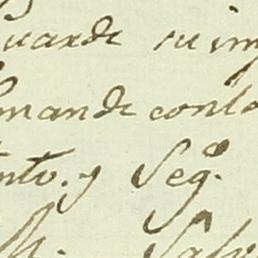 uarde su im
mande conlo
nto. y Seg.º
M.